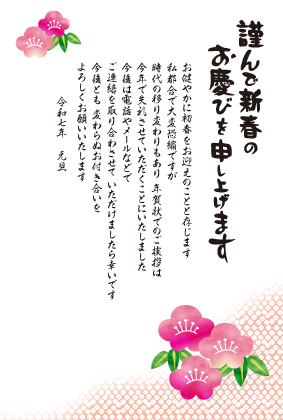 謹んで新春の
お慶びを申し上げます
お健やかに初春をお迎えのことと存じます
私都合で大変恐縮ですが
時代の移り変わりもあり 年賀状でのご挨拶は
今年で失礼させていただくことにいたしました
今後は電話やメールなどで
ご連絡を取り合わさせていただけましたら幸いです
今後とも 変わらぬお付き合いを
よろしくお願いいたします
令和七年 元旦